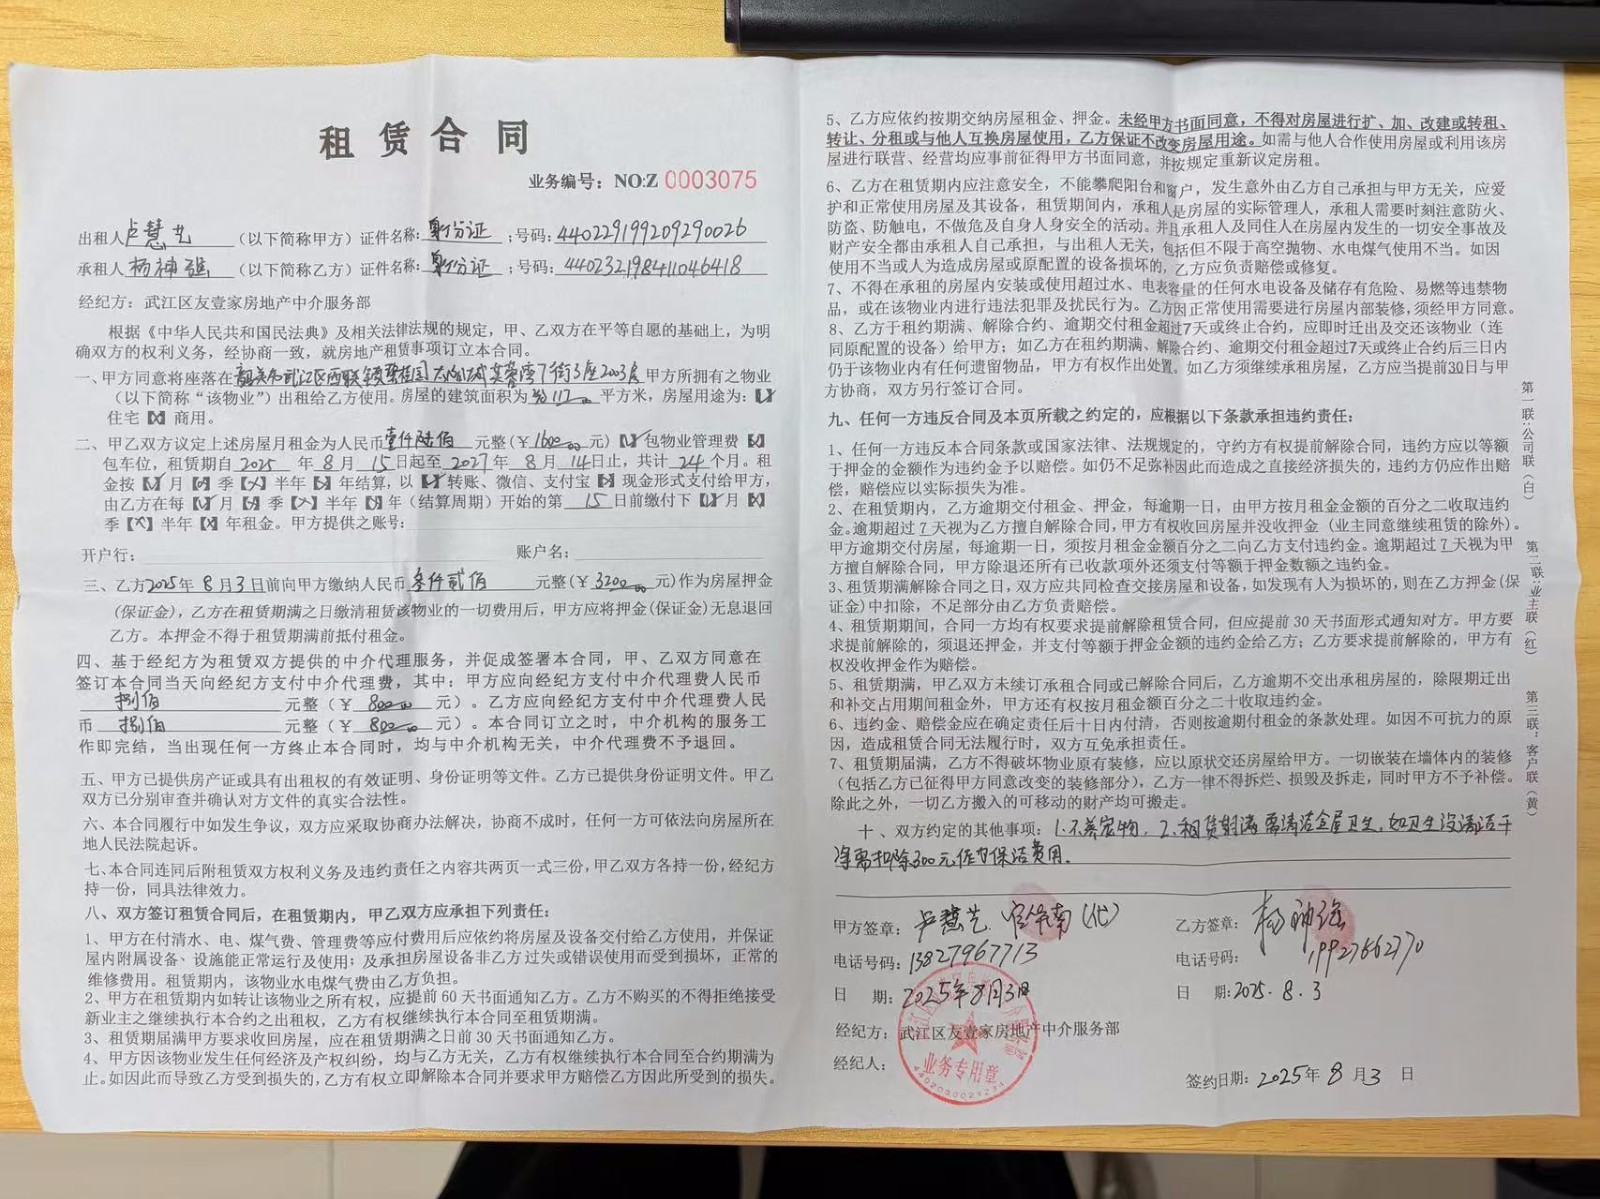 租赁合同
业务编号：NO:Z 0003075
出租人卢慧艺（以下简称甲方）证件名称：身份证；号码：440229199209290026
承租人杨神强（以下简称乙方）证件名称：身份证；号码：440232198411046418
经纪方：武江区友壹家房地产中介服务部
根据《中华人民共和国民法典》及相关法律法规的规定，甲、乙双方在平等自愿的基础上，为明
确双方的权利义务，经协商一致，就房地产租赁事项订立本合同。
一、甲方同意将座落在韶关市武江区西联镇碧桂园太阳城芙蓉湾7街3座2003房甲方所拥有之物业
（以下简称“该物业”）出租给乙方使用。房屋的建筑面积为 117 平方米，房屋用途为：【✓】
住宅【×】商用。
二、甲乙双方议定上述房屋月租金为人民币壹仟陆佰元整（¥1600.00元）【✓】包物业管理费【×】
包车位，租赁期自 2025 年 8 月 15 日起至 2027 年 8 月 14 日止，共计 24 个月。租
金按【✓】月【×】季【×】半年【×】年结算，以【✓】转账、微信、支付宝【×】现金形式支付给甲方，
由乙方在每【✓】月【×】季【×】半年【×】年（结算周期）开始的第 15 日前缴付下【✓】月【×】
季【×】半年【×】年租金。甲方提供之账号：
开户行： 账户名：
三、乙方2025年8月3日前向甲方缴纳人民币叁仟贰佰元整（¥3200.00元）作为房屋押金
（保证金），乙方在租赁期满之日缴清租赁该物业的一切费用后，甲方应将押金（保证金）无息退回
乙方。本押金不得于租赁期满前抵付租金。
四、基于经纪方为租赁双方提供的中介代理服务，并促成签署本合同，甲、乙双方同意在
签订本合同当天向经纪方支付中介代理费，其中：甲方应向经纪方支付中介代理费人民币
捌佰 元整（¥ 800.00 元）。乙方应向经纪方支付中介代理费人民
币 捌佰 元整（¥ 800.00 元）。本合同订立之时，中介机构的服务工
作即完结，当出现任何一方终止本合同时，均与中介机构无关，中介代理费不予退回。
五、甲方已提供房产证或具有出租权的有效证明、身份证明等文件。乙方已提供身份证明文件。甲乙
双方已分别审查并确认对方文件的真实合法性。
六、本合同履行中如发生争议，双方应采取协商办法解决，协商不成时，任何一方可依法向房屋所在
地人民法院起诉。
七、本合同连同后附租赁双方权利义务及违约责任之内容共两页一式三份，甲乙双方各持一份，经纪方
持一份，同具法律效力。
八、双方签订租赁合同后，在租赁期内，甲乙双方应承担下列责任：
1、甲方在付清水、电、煤气费、管理费等应付费用后应依约将房屋及设备交付给乙方使用，并保证
屋内附属设备、设施能正常运行及使用；及承担房屋设备非乙方过失或错误使用而受到损坏，正常的
维修费用。租赁期内，该物业水电煤气费由乙方负担。
2、甲方在租赁期内如转让该物业之所有权，应提前60天书面通知乙方。乙方不购买的不得拒绝接受
新业主之继续执行本合约之出租权，乙方有权继续执行本合同至租赁期满。
3、租赁期届满甲方要求收回房屋，应在租赁期满之日前30天书面通知乙方。
4、甲方因该物业发生任何经济及产权纠纷，均与乙方无关，乙方有权继续执行本合同至合约期满为
止。如因此而导致乙方受到损失的，乙方有权立即解除本合同并要求甲方赔偿乙方因此所受到的损失。
5、乙方应依约按期交纳房屋租金、押金。未经甲方书面同意，不得对房屋进行扩、加、改建或转租、
转让、分租或与他人互换房屋使用，乙方保证不改变房屋用途。如需与他人合作使用房屋或利用该房
屋进行联营、经营均应事前征得甲方书面同意，并按规定重新议定房租。
6、乙方在租赁期内应注意安全，不能攀爬阳台和窗户，发生意外由乙方自己承担与甲方无关，应爱
护和正常使用房屋及其设备，租赁期间内，承租人是房屋的实际管理人，承租人需要时刻注意防火、
防盗、防触电，不做危及自身人身安全的活动。并且承租人及同住人在房屋内发生的一切安全事故及
财产安全都由承租人自己承担，与出租人无关，包括但不限于高空抛物、水电煤气使用不当。如因
使用不当或人为造成房屋或原配置的设备损坏的，乙方应负责赔偿或修复。
7、不得在承租的房屋内安装或使用超过水、电表容量的任何水电设备及储存有危险、易燃等违禁物
品，或在该物业内进行违法犯罪及扰民行为。乙方因正常使用需要进行房屋内部装修，须经甲方同意。
8、乙方于租约期满、解除合约、逾期交付租金超过7天或终止合约，应即时迁出及交还该物业（连
同原配置的设备）给甲方；如乙方在租约期满、解除合约、逾期交付租金超过7天或终止合约后三日内
仍于该物业内有任何遗留物品，甲方有权作出处置。如乙方须继续承租房屋，乙方应当提前30日与甲
方协商，双方另行签订合同。
九、任何一方违反合同及本页所载之约定的，应根据以下条款承担违约责任：
1、任何一方违反本合同条款或国家法律、法规规定的，守约方有权提前解除合同，违约方应以等额
于押金的金额作为违约金予以赔偿。如仍不足弥补因此而造成之直接经济损失的，违约方仍应作出赔
偿，赔偿应以实际损失为准。
2、在租赁期内，乙方逾期交付租金、押金，每逾期一日，由甲方按月租金金额的百分之二收取违约
金。逾期超过 7 天视为乙方擅自解除合同，甲方有权收回房屋并没收押金（业主同意继续租赁的除外）。
甲方逾期交付房屋，每逾期一日，须按月租金金额百分之二向乙方支付违约金。逾期超过 7 天视为甲
方擅自解除合同，甲方除退还所有已收款项外还须支付等额于押金数额之违约金。
3、租赁期满解除合同之日，双方应共同检查交接房屋和设备，如发现有人为损坏的，则在乙方押金（保
证金）中扣除，不足部分由乙方负责赔偿。
4、租赁期期间，合同一方均有权要求提前解除租赁合同，但应提前30天书面形式通知对方。甲方要
求提前解除的，须退还押金，并支付等额于押金金额的违约金给乙方；乙方要求提前解除的，甲方有
权没收押金作为赔偿。
5、租赁期满，甲乙双方未续订承租合同或已解除合同后，乙方逾期不交出承租房屋的，除限期迁出
和补交占用期间租金外，甲方还有权按月租金额百分之二十收取违约金。
6、违约金、赔偿金应在确定责任后十日内付清，否则按逾期付租金的条款处理。如因不可抗力的原
因，造成租赁合同无法履行时，双方互免承担责任。
7、租赁期届满，乙方不得破坏物业原有装修，应以原状交还房屋给甲方。一切嵌装在墙体内的装修
（包括乙方已征得甲方同意改变的装修部分），乙方一律不得拆烂、损毁及拆走，同时甲方不予补偿。
除此之外，一切乙方搬入的可移动的财产均可搬走。
十、双方约定的其他事项：1.不养宠物，2.租赁期满需清洁全屋卫生，如卫生没清洁干
净需扣除300元作为保洁费用。
甲方签章：卢慧艺 官华南（代） 乙方签章：杨神强
电话号码：13827967713 电话号码：19927662770
日 期：2025年8月3日 日 期：2025.8.3
经纪方：武江区友壹家房地产中介服务部
经纪人：
业务专用章
签约日期：2025年8月3日
第一联：公司联（白） 第二联：业主联（红） 第三联：客户联（黄）